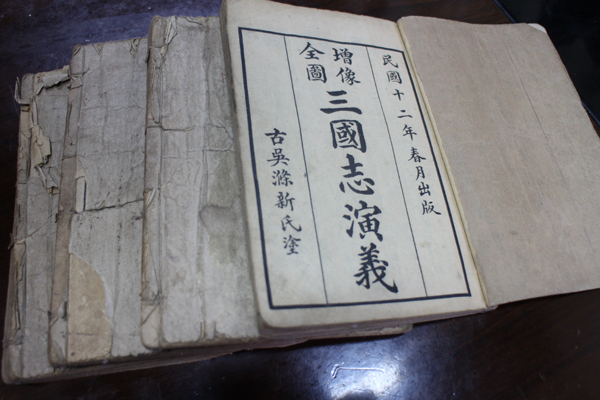 民國十二年春月出版
增像全圖
三國志演義
古吳滌新氏塗